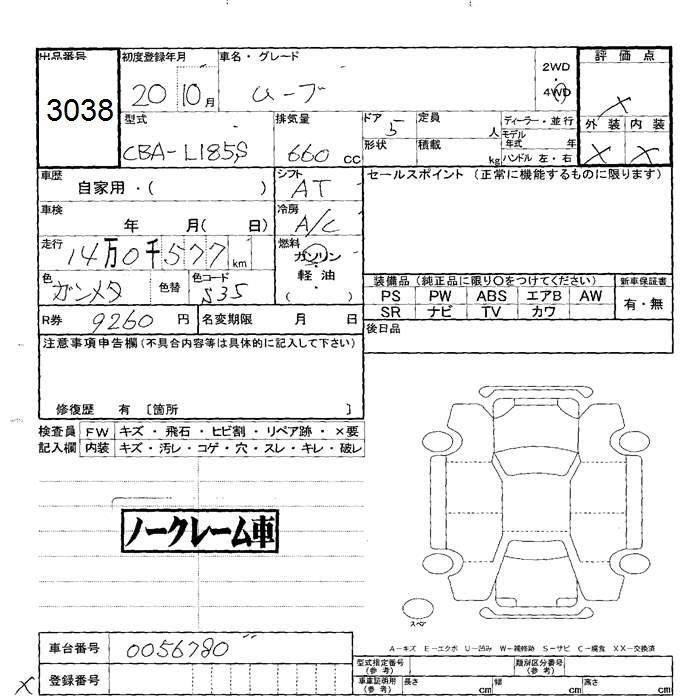 出品番号 初度登録年月 車名・グレード 評価点
3038 20 10月 ムーブ 2WD 4WD X
外装 内装
X X
型式 排気量 ドア 定員 ディーラー・並行
CBA-L185S 660 cc 5 人 モデル年式 年
形状 積載 kg ハンドル 左・右
車歴 シフト セールスポイント (正常に機能するものに限ります)
自家用・( ) AT
車検 冷房
年 月( 日) A/C
走行 燃料
14万0千577 km ガソリン・軽油 ( )
色 色替 色コード 装備品(純正品に限り○をつけてください) 新車保証書
ガンメタ S35 PS PW ABS エアB AW 有・無
SR ナビ TV カワ
R券 9260 円 名変期限 月 日 後日品
注意事項申告欄(不具合内容等は具体的に記入して下さい)
修復歴 有 〔箇所 〕
検査員 FW キズ・飛石・ヒビ割・リペア跡・×要
記入欄 内装 キズ・汚レ・コゲ・穴・スレ・キレ・破レ
ノークレーム車
スペア
A-キズ E-エクボ U-凹み W-補修跡 S-サビ C-腐食 XX-交換済
車台番号 0056780
型式指定番号(参考) 類別区分番号(参考)
X 登録番号
車庫証明用(参考) 長さ cm 幅 cm 高さ cm